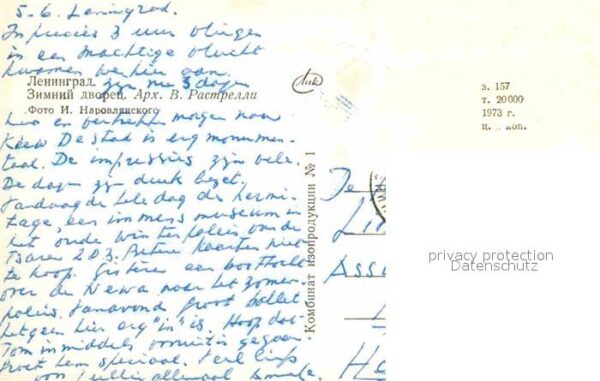 5-6. Leningrad.
In precies 3 uur vliegen
in een machtige vlucht
kwamen we hier aan.
Ленинград. zijn nu 3 dagen
Зимний дворец. Арх. В. Растрелли
Фото И. Наровлянского
hier en vertrekken morgen naar
Kiew. De stad is erg monumen-
taal. De impressies zijn vele.
De dagen zijn druk bezet.
Vandaag de hele dag de hermi-
tage, een immens museum in
het oude winterpaleis van de
Tsaren z.o.z. Betere kaarten niet
te koop. Gisteren een boottocht
over de Newa naar het zomer-
paleis. Vanavond groot ballet
hetgeen hier erg "in" is. Hoop dat
Tom inmiddels vooruit is gegaan
groet hem speciaal. Veel liefs
voor jullie allemaal
Комбинат изопродукции № 1
з. 157
т. 20000
1973 г.
ц. коп.
privacy protection
Datenschutz